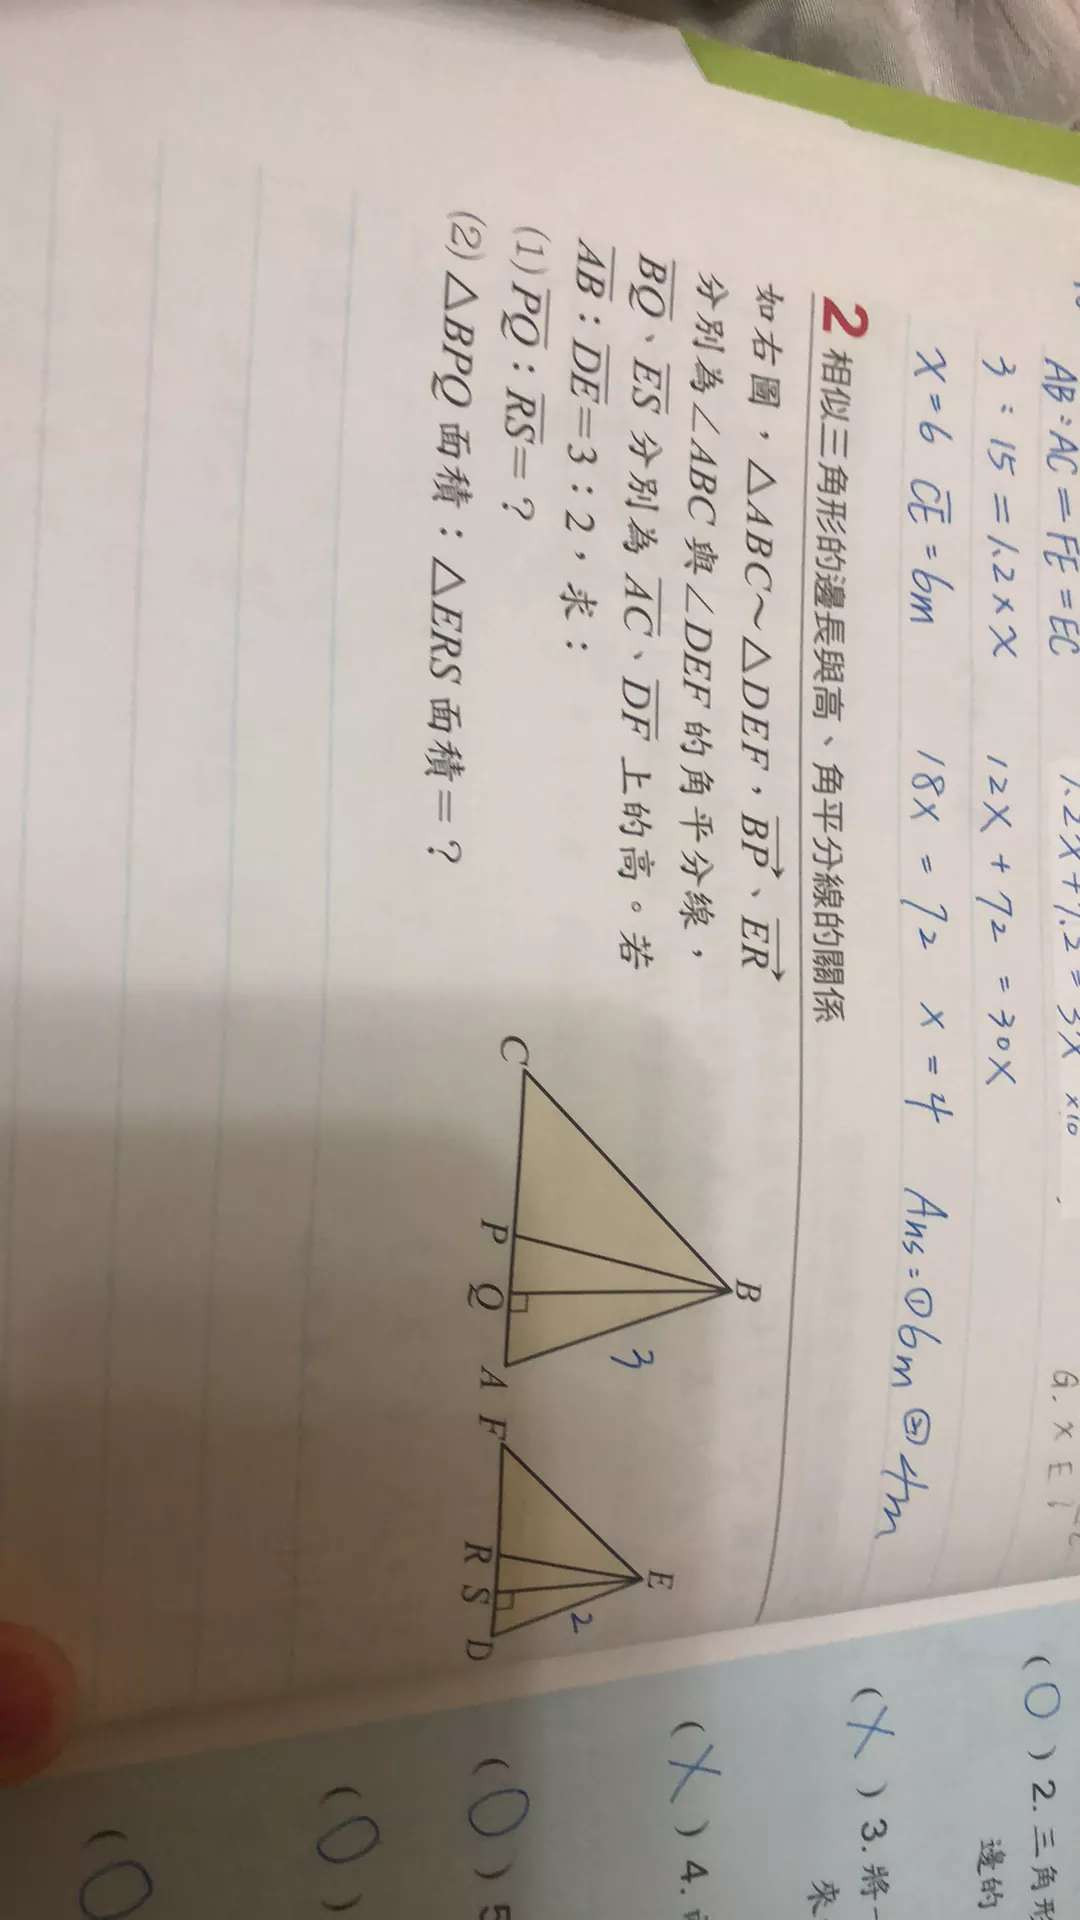 AB:AC=FE=EC
3:15=1.2×x
12x+72=30x
x=6 CE=6m
18x=72 x=4 Ans=①6m②4m
2 相似三角形的邊長與高、角平分線的關係
如右圖，△ABC~△DEF，BP、ER
分別為∠ABC與∠DEF的角平分線，
BQ、ES分別為AC、DF上的高。若
AB：DE=3：2，求：
(1) PQ：RS=？
(2) △BPQ面積：△ERS面積=？
B
3
C
P
Q
A
E
2
F
R
S
D
(O) 2. 三角形
邊的
(X) 3. 將
來
(X) 4.
(O) 5
(O)
(O